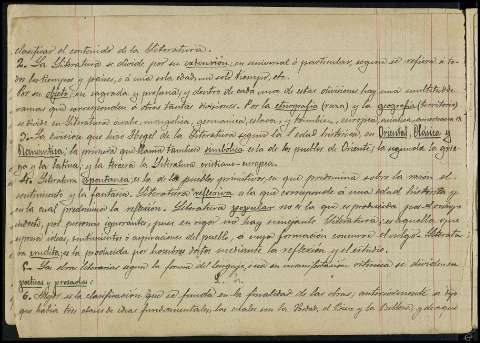 clasificar el contenido de la Literatura.
2. La Literatura se divide por su extensión, en universal ó particular, segun se refiera á to-
dos los tiempos y países, ó a una sola edad, un solo tiempo, etc.
Por su objeto, en sagrada y profana, y dentro de cada una de estas divisiones hay una multitud de
ramas que corresponden á otras tantas divisiones. Por la etnografía (raza) y la geografía (territorio)
se divide en Literatura árabe, mongólica, germánica, eslava, y tambien, europea, asiática,
3. La division que hizo Hegel de la Literatura segun la edad histórica, en Oriental, Clásica y
Romantica, la primera que llama tambien simbólica es la de los pueblos de Oriente, la segunda la grie-
ga y la latina, y la tercera la Literatura cristiano-europea.
4. Literatura espontanea es la de los pueblos primitivos en que predomina sobre la razon el
sentimiento y la fantasía. Literatura reflexiva es la que corresponde á una edad histórica en
en la cual predomina la reflexión. Literatura popular no es la que es producida por el vulgo
indocto, por personas ignorantes, pues en rigor no hay semejante Literatura, es aquella que
expresa ideas, sentimientos ó aspiraciones del pueblo, á cuya formacion concurre el vulgo. Literatu-
ra erudita, es la producida por hombres doctos mediante la reflexión y el estudio.
5. Las obras literarias segun la forma del lenguaje, en su manifestación rítmica se dividen en
poéticas y prosadas.
6. Mejor es la clasificación que se funda en la finalidad de las obras; anteriormente se dijo
que habia tres clases de ideas fundamentales, las cuales son la Verdad, el Bien y la Belleza, y de aquí